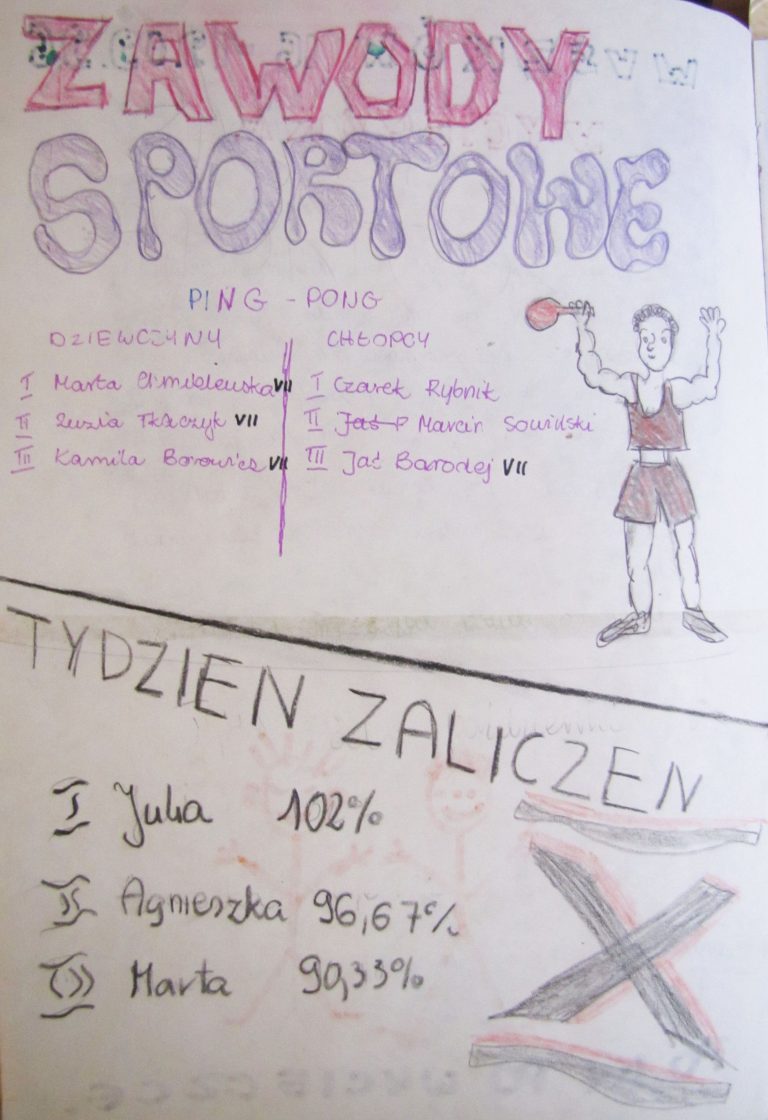 ZAWODY
SPORTOWE
PING - PONG
DZIEWCZYNY
I Marta VII
II Zuzia Tkaczyk VII
III Kamila Borowicz VII
CHŁOPCY
I Czarek Rybnik
II Jaś P Marcin Sowiński
III Jaś Barodej VII
TYDZIEN ZALICZEN
I Julia 102%
II Agnieszka 96,67%
III Marta 90,33%
X